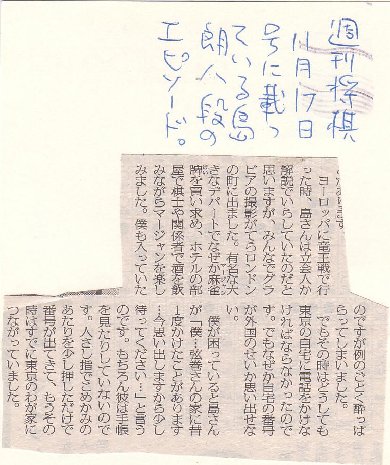 週刊将棋
11月17日
号に載っ
ている島
朗八段の
エピソード。
ヨーロッパに竜王戦で行
った時、島さんは立会人か
解説でいらしていたのだと
思いますが、みんなでグラ
ビアの撮影がてらロンドン
の町に出ました。有名な大
きなデパートでなぜか麻雀
牌を買い求め、ホテルの部
屋で棋士や関係者で酒を飲
みながらマージャンを楽し
みました。僕も入っていた
のですが例のごとく酔っぱ
らってしまいました。
でもその時はどうしても
東京の自宅に電話をかけな
ければならなかったので
す。でもなぜか自宅の番号
が外国のせいか思い出せな
い。
僕が困っていると島さん
が「僕一弦巻さんの家に昔
1度かけたことがあります
…今思い出しますから少し
待ってください…」と言う
のです。もちろん彼は手帳
を見たりしていないので
す。人さし指でこめかみの
あたりを少し押しただけで
番号が出てきて、もうその
時はすでに東京のわが家に
つながっていました。